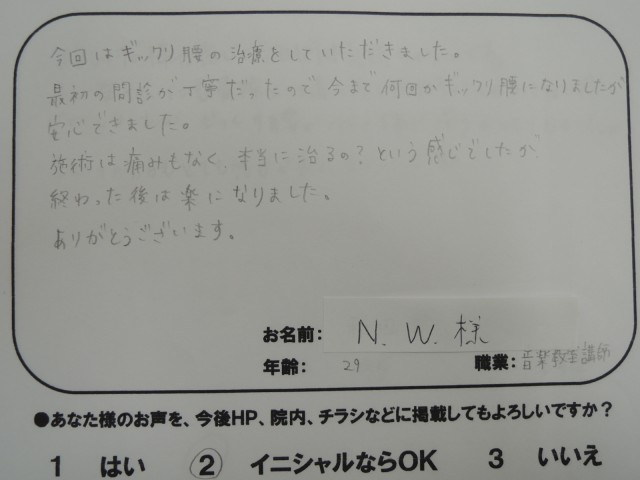 今回はギックリ腰の治療をしていただきました。
最初の問診が丁寧だったので今まで何回かギックリ腰になりましたが
安心できました。
施術は痛みもなく、本当に治るの?という感じでしたが、
終わった後は楽になりました。
ありがとうございます。
お名前: N. W. 様
年齢: 29 職業: 音楽教室講師
●あなた様のお声を、今後HP、院内、チラシなどに掲載してもよろしいですか？
1 はい ② イニシャルならOK 3 いいえ